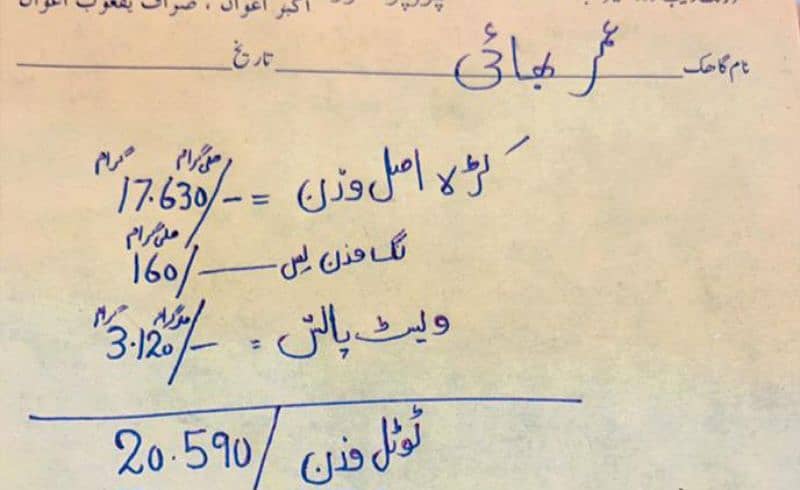 اکبر اعوان ، صراف یعقوب اعوان
نام گاہک عمر بھائی تاریخ
ملی گرام گرام
کڑہ اصل وزن = 17.630/-
ملی گرام
نگ وزن لیس 160/
گرام
ویسٹ پالش = 3.120/-
ٹوٹل وزن 20.590/